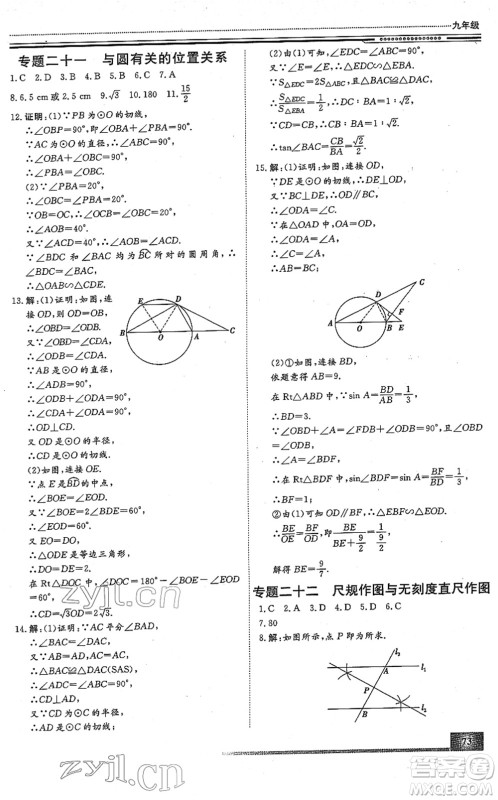 九年级
专题二十一　与圆有关的位置关系
1. C　2. D　3. B　4. B　5. C　7. A
8. 6.5 cm或2.5 cm　9. √3　10. 180　11. 15/2
12. 证明:(1)∵PB为⊙O的切线,
∴∠OBP=90°,即∠OBA+∠PBA=90°.
∵AC为⊙O的直径,
∴∠ABC=90°,即∠OBA+∠OBC=90°.
∴∠PBA=∠OBC.
(2)∵∠PBA=20°,
∴∠OBC=∠PBA=20°.
∵OB=OC,∴∠OCB=∠OBC=20°.
∴∠AOB=40°.
又∵∠ACD=40°,∴∠AOB=∠ACD.
又∵∠BDC和∠BAC为BC所对的圆周角,∴
∠BDC=∠BAC.
∴△OAB∽△CDE.
13. 解:(1)证明:如图,连
接OD,则OD=OB.
∴∠BDO=∠ABD.
∵∠CDA=∠ABD,
∴∠BDO=∠CDA.
∵AB是⊙O的直径,
∴∠ADB=90°.
∴∠ADO+∠BDO=90°.
∴∠ADO+∠CDA=90°.
∴∠CDO=90°.
∴OD⊥CD.
又OD是⊙O的半径,
∴CD是⊙O的切线.
(2)如图,连接OE.
∵点E是BD的中点,
∴∠BOE=∠EOD.
∵∠BOE=2∠BDE=60°,
∴∠BOE=∠EOD=60°.
又OE=OD,
∴△DOE为等边三角形.
∴OD=DE=2.
在Rt△CDO中,∠DOC=180°−∠BOE−
∠EOD=60°,
∴CD=√3OD=2√3.
14. 解:(1)证明:∵AC平分∠BAD,
∴∠BAC=∠DAC.
∴△BAC≌△DAC(SAS).
∴∠ADC=∠ABC=90°.
∴CD⊥AD.
又AD是⊙O的半径,
∴CD是⊙O的切线;
(2)由(1)可知,∠EDC=∠ABC=90°.
又∠E=∠E,∴△EDC∽△EBA.
∵S△EBA=2S△EDC,
∴S△EDC/S△EBA=1/2,∴DC/BA=1/√2.
∵CD=CB,∴CB/BA=1/√2.
∴tan∠BAC=CB/BA=√2/2.
15. 解:(1)证明:如图,连接OD,
∵DE是⊙O的切线,
∴DE⊥OD.
又BC⊥DE,
∴OD∥BC.
∴∠ODA=∠C.
∵在△OAD中,OA=OD,
∴∠ODA=∠A.
∴∠A=∠C.
(2)①如图,连接BD.
依题意得AB=9.
在Rt△ABD中,∵sin A=BD/AB=1/3,
∴BD=3.
又∠OBD+∠A=∠FDB+∠ODB=90°,
∠OBD=∠ODB,
∴∠FDB=∠A.
∴在Rt△BDF中,sin∠BDF=BF/BD=1/3,
∴BF=1.
②由(1)可知,OD∥BF,
∴△EBF∽△EOD.
∴BE/OE=BF/OD,即BE/(BE+9/2)=1/(9/2).
解得BE=9/7.
专题二十二　尺规作图与无刻度直尺作图
1. C　2. A　3. D　4. D　5. D　6. C
7. 80
8. 解:如图所示,点P即为所求.
B
O
A
C
D
E
A
O
B
E
D
C
F
l3
A
l1
P
B
l2
73
zyjl.cn
zyjl.cn